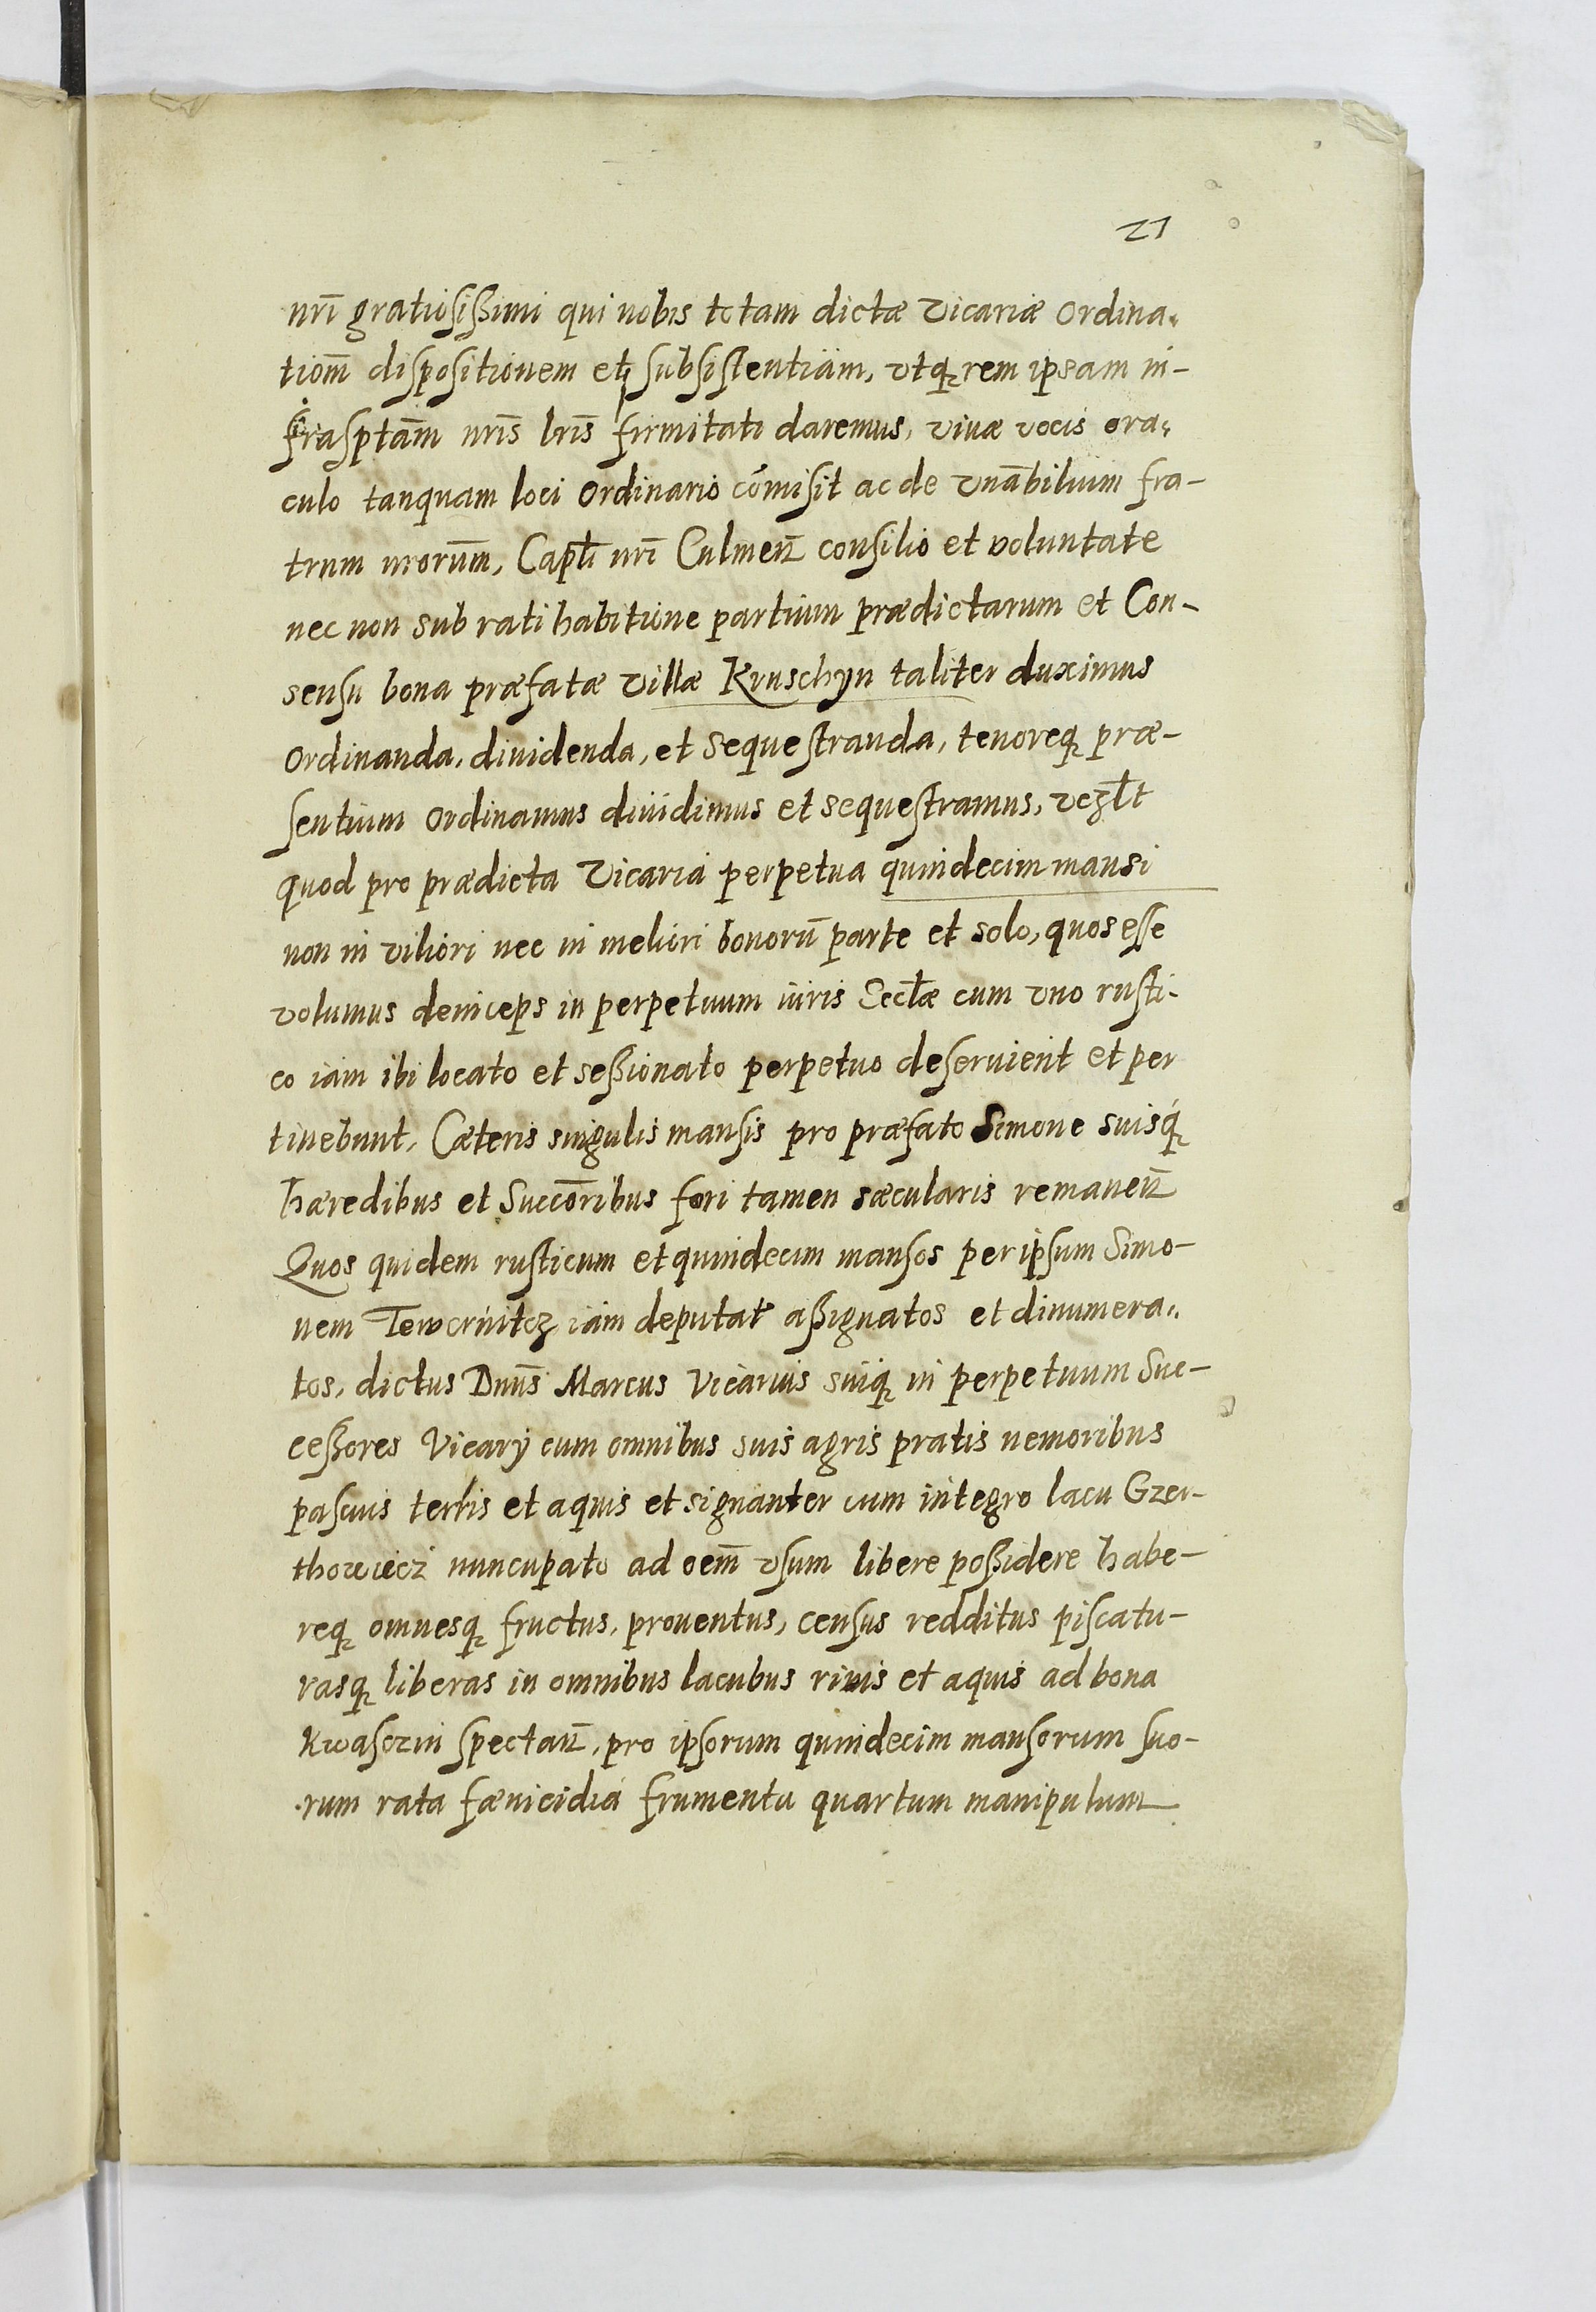 21
nrı̃ gratiosißimi qui nobis totam dictæ Vicariæ Ordina-
tiom̃ dispositionem et subsistentiam, vtq̃ rem ipsam in-
frasptam̃ nrı̃s lrı̃s firmitati daremus, viuæ vocis ora-
culo tanquam loci Ordinario com̃isit ac de vnãbilium fra-
trum nrorum̃, Caplı̃ nrı̃ Culmeñ consilio et voluntate
nec non sub rati habitione partium prædictarum et Con-
sensu bona præfatæ Villæ Kruschyn taliter duximus
Ordinanda, diuidenda, et sequestranda, tenoreq̃ præ-
sentium Ordinamus diuidimus et sequestramus, vezlt̃
quod pro prædicta Vicaria perpetua quindecim mansi
non in viliori nec in meliori bonorũ parte et solo, quos esse
volumus deinceps in perpetuum iuris Eccłæ cum vno rusti-
co iam ibi locato et seßionato perpetuo deseruient et per
tinebunt, Cæteris singulis mansis pro præfato Simone suisq̃
hæredibus et Succõribus fori tamen sæcularis remaneñ
Quos quidem rusticum et quindecim mansos per ipsum Simo-
nem Tewcrnitcz iam deputat aßignatos et dinumera-
tos, dictus Dnũs Marcus Vicarius suiq̃ in perpetuum Suc-
ceßores Vicarÿ cum omnibus suis agris pratis nemoribus
pascuis terris et aquis et signanter cum integro lacu Gzer-
thowiecz nuncupato ad oem̃ vsum libere poßidere habe-
req̃ omnesq̃ fructus, prouentus, census redditus piscatu-
rasq̃ liberas in omnibus lacubus riuis et aquis ad bona
Kwasozin spectañ, pro ipsorum quindecim mansorum suo-
rum rata fænicidia frumenta quartum manipulum